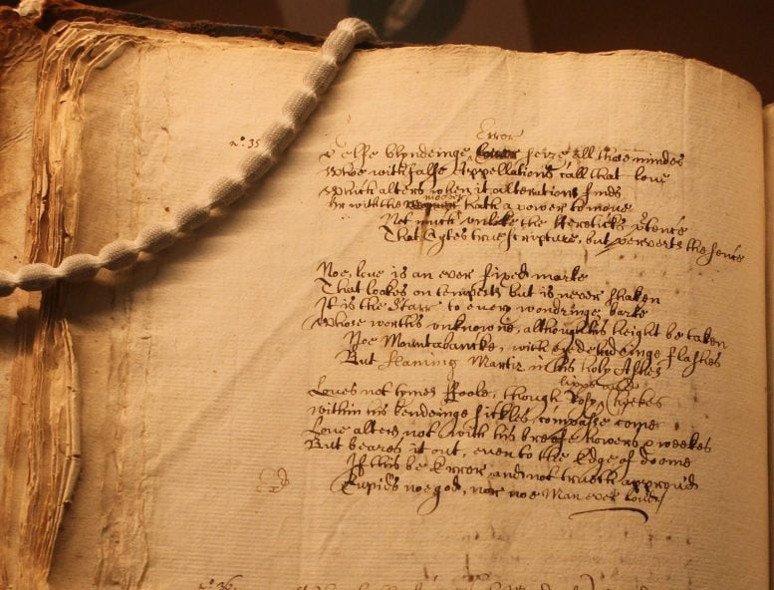 Error
n.o 35
Selfe blyndeinge Error seize all those mindes
Who with false Appellations call that love
which alters when it alterations finds
moover
Or with the hath a power to moue
Not much unlike the Hereticks pretence
That Cytes trew scripture, but perverts the sence
Noe, love is an ever fixed marke
That lookes on tempests but is never shaken
It is the starr to every wondringe barke
Whose worth's unknowne, although his height be taken
Noe Mountabancke, with eyedeludeinge flashes
But flameing Martir in his holy Ashes
lippes and
Loues not tymes ffoole, though Rosy Cheekes
within his bendeinge sickles, compasse come
Love alters not with his breefe howers & weekes
But beares it out, even to the Edge of doome
If this be Error and not truth approud
Cupids noe god, nor noe Man ever loud